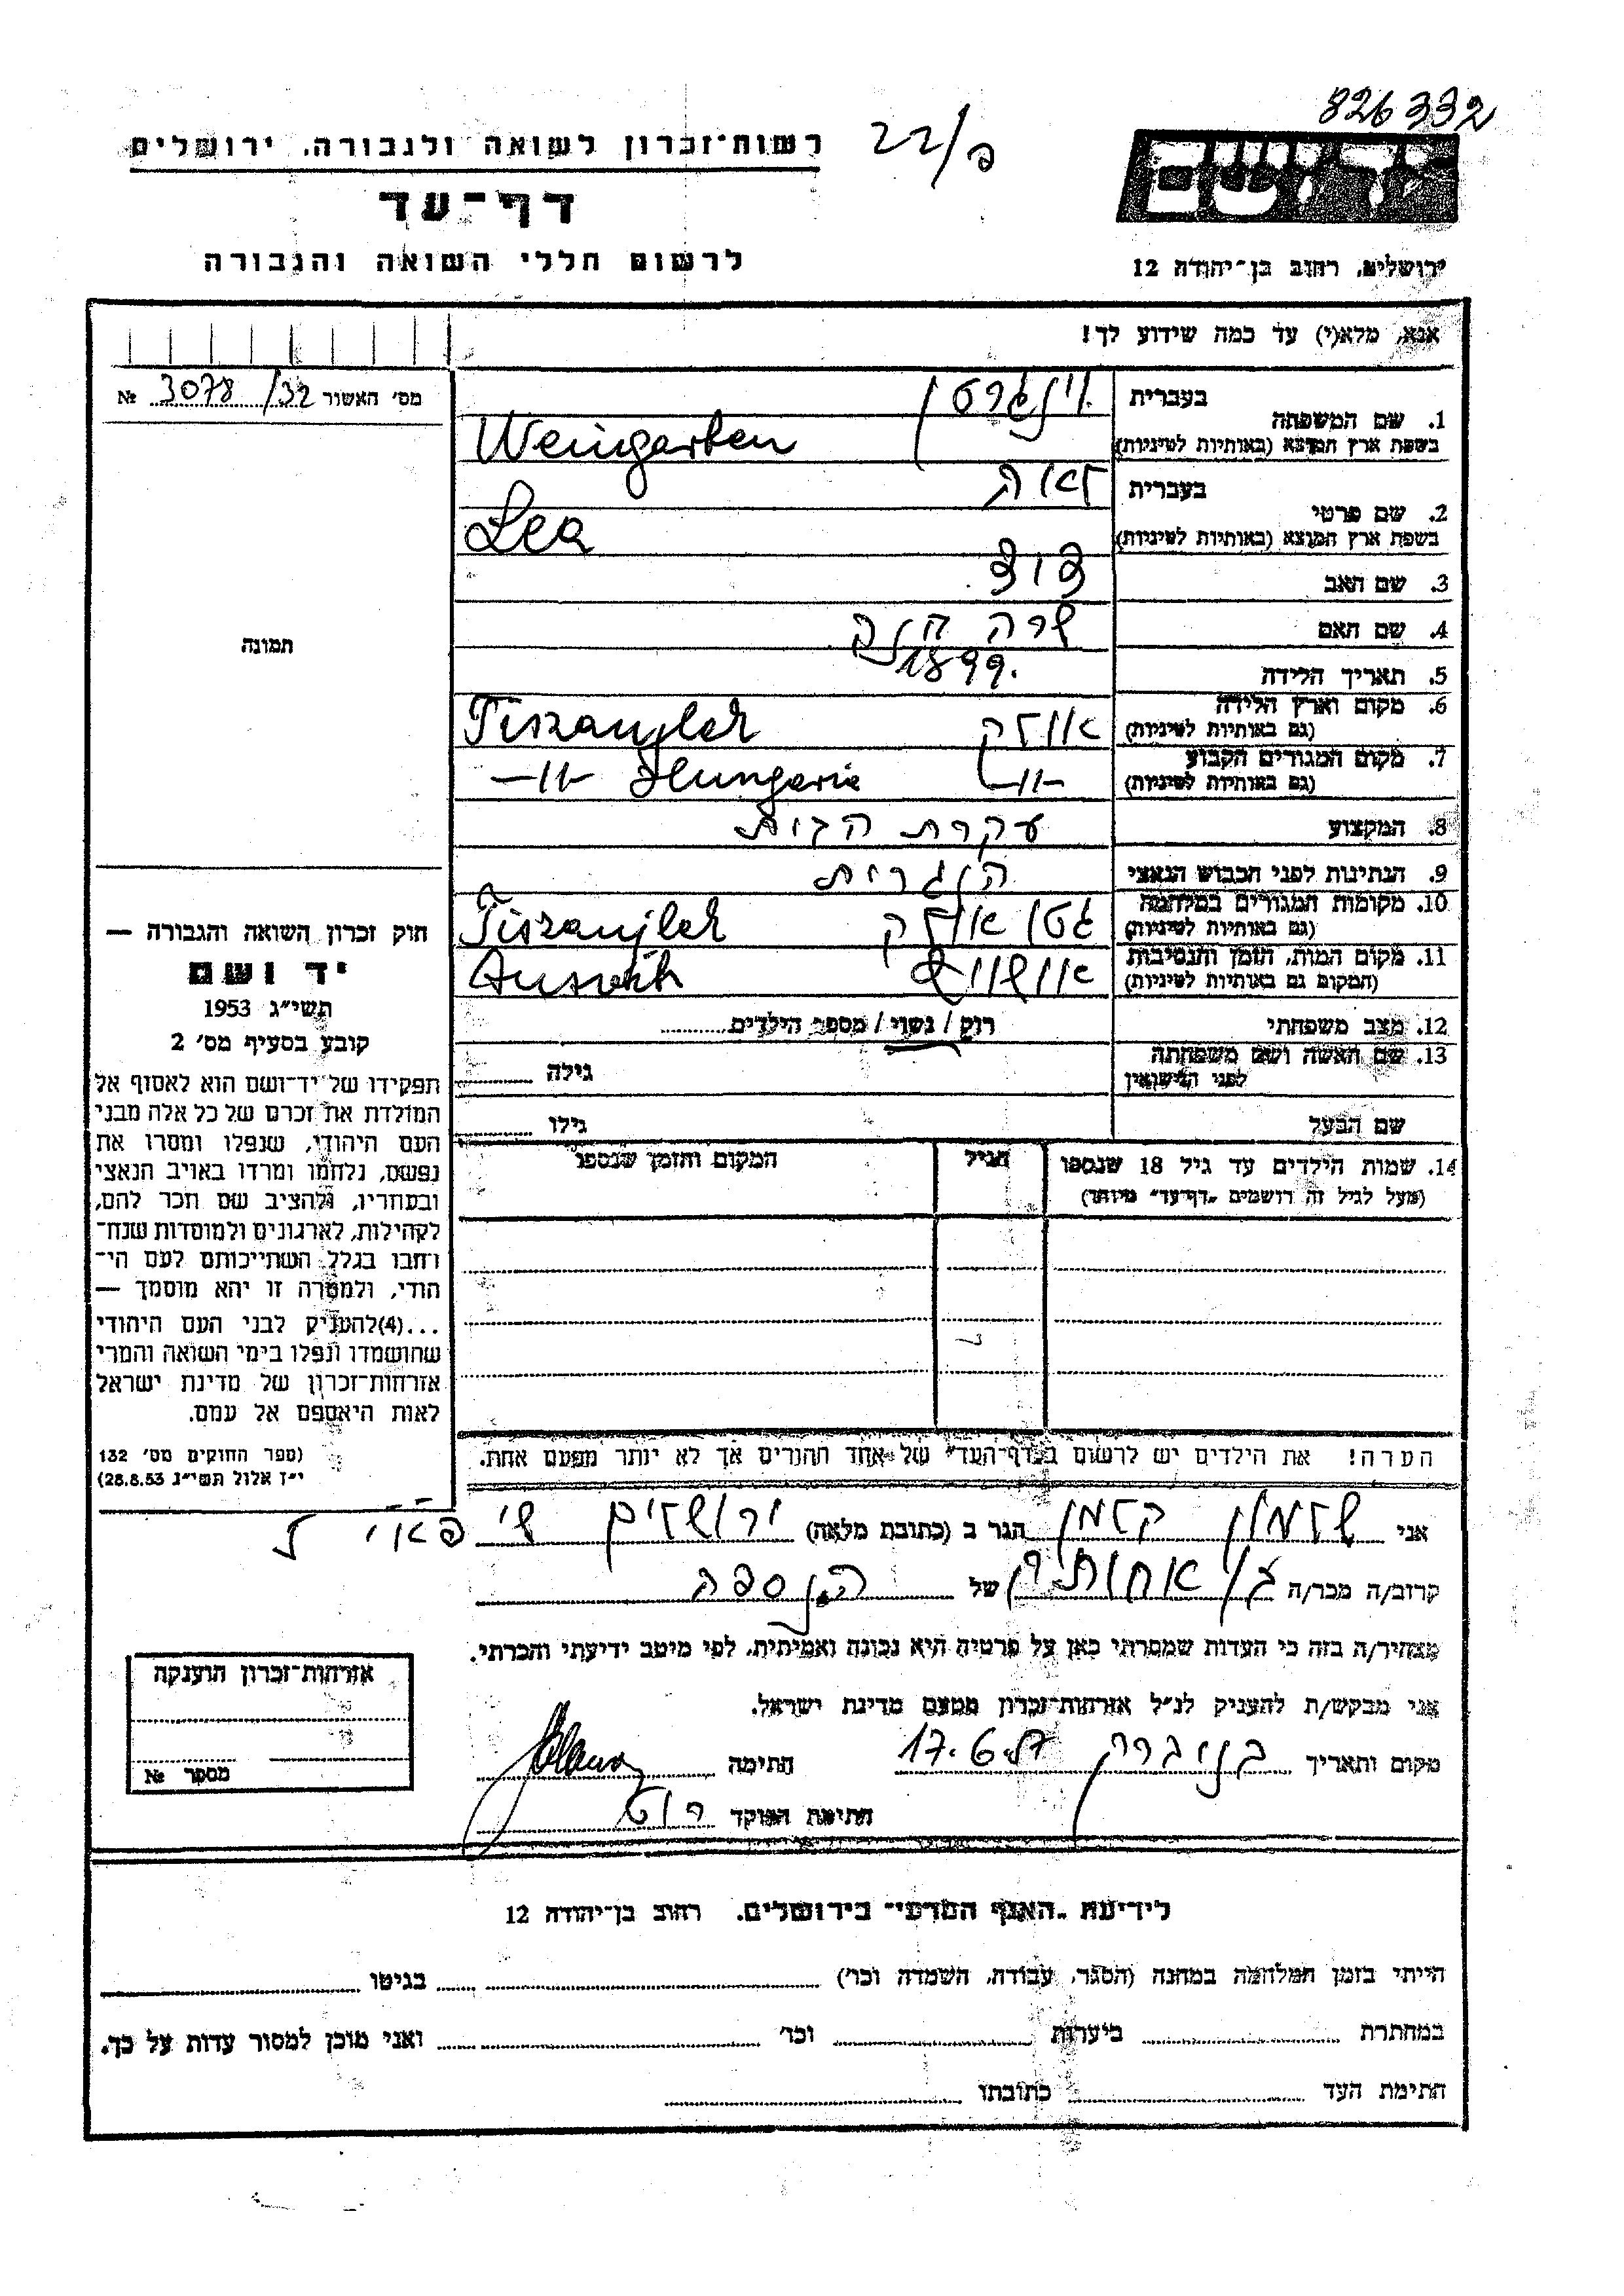 826332
רשות־זכרון לשואה ולגבורה, ירושלים
22/פ
דף־עד
לרשום חללי השואה והגבורה
ירושלים, רחוב בן־יהודה 12
אנא, מלא(י) עד כמה שידוע לך!
מס׳ האשור 3078/32 №
תמונה
1. שם המשפחה
בעברית וינגרטן
בשפת ארץ המוצא (באותיות לטיניות) Weingarten
2. שם פרטי
בעברית לאה
בשפת ארץ המוצא (באותיות לטיניות) Lea
3. שם האב
4. שם האם שרה
5. תאריך הלידה 1899.
6. מקום וארץ הלידה
(גם באותיות לטיניות) אוילק Tiszaujlak
7. מקום המגורים הקבוע
(גם באותיות לטיניות) —״— —״— Hungaria
8. המקצוע עקרת הבית
9. הנתינות לפני הכבוש הנאצי הונגרית
10. מקומות המגורים במלחמה
(גם באותיות לטיניות) גטו אוילק Tiszaujlak
11. מקום המות, הזמן והנסיבות
(המקום גם באותיות לטיניות) אושוויץ
12. מצב משפחתי רוק / נשוי / מספר הילדים
13. שם האשה ושם משפחתה
לפני הנישואין גילה
שם הבעל גילו
14. שמות הילדים עד גיל 18 שנספו הגיל המקום והזמן שנספו
(מעל לגיל זה רושמים ״דף־עד״ מיוחד)
הערה! את הילדים יש לרשום ב״דף־העד״ של אחד ההורים אך לא יותר מפעם אחת.
חוק זכרון השואה והגבורה —
יד ושם
תשי״ג 1953
קובע בסעיף מס׳ 2
תפקידו של יד־ושם הוא לאסוף אל
המולדת את זכרם של כל אלה מבני
העם היהודי, שנפלו ומסרו את
נפשם, נלחמו ומרדו באויב הנאצי
ובעוזריו, ולהציב שם וזכר להם,
לקהילות, לארגונים ולמוסדות שנח־
רבו בגלל השתייכותם לעם הי־
הודי, ולמטרה זו יהא מוסמך —
...(4)להעניק לבני העם היהודי
שהושמדו ונפלו בימי השואה והמרי
אזרחות־זכרון של מדינת ישראל
לאות היאספם אל עמם.
(ספר החוקים מס׳ 132
י״ז אלול תשי״ג 28.8.53)
אני קלמן הגר ב (כתובת מלאה) ירושלים
קרוב/ה מכר/ה בן אחותי של הנספה
מצהיר/ה בזה כי העדות שמסרתי כאן על פרטיה היא נכונה ואמיתית, לפי מיטב ידיעתי והכרתי.
אני מבקש/ת להעניק לנ״ל אזרחות־זכרון מטעם מדינת ישראל.
מקום ותאריך בני ברק 17.6.57 חתימה
חתימת הפוקד רוט
אזרחות־זכרון הוענקה
מספר №
לידיעת ״האגף המדעי״ בירושלים, רחוב בן־יהודה 12
הייתי בזמן המלחמה במחנה (הסגר, עבודה, השמדה וכו׳) בגיטו
במחתרת ביערות וכו׳ ואני מוכן למסור עדות על כך.
חתימת העד כתובתו